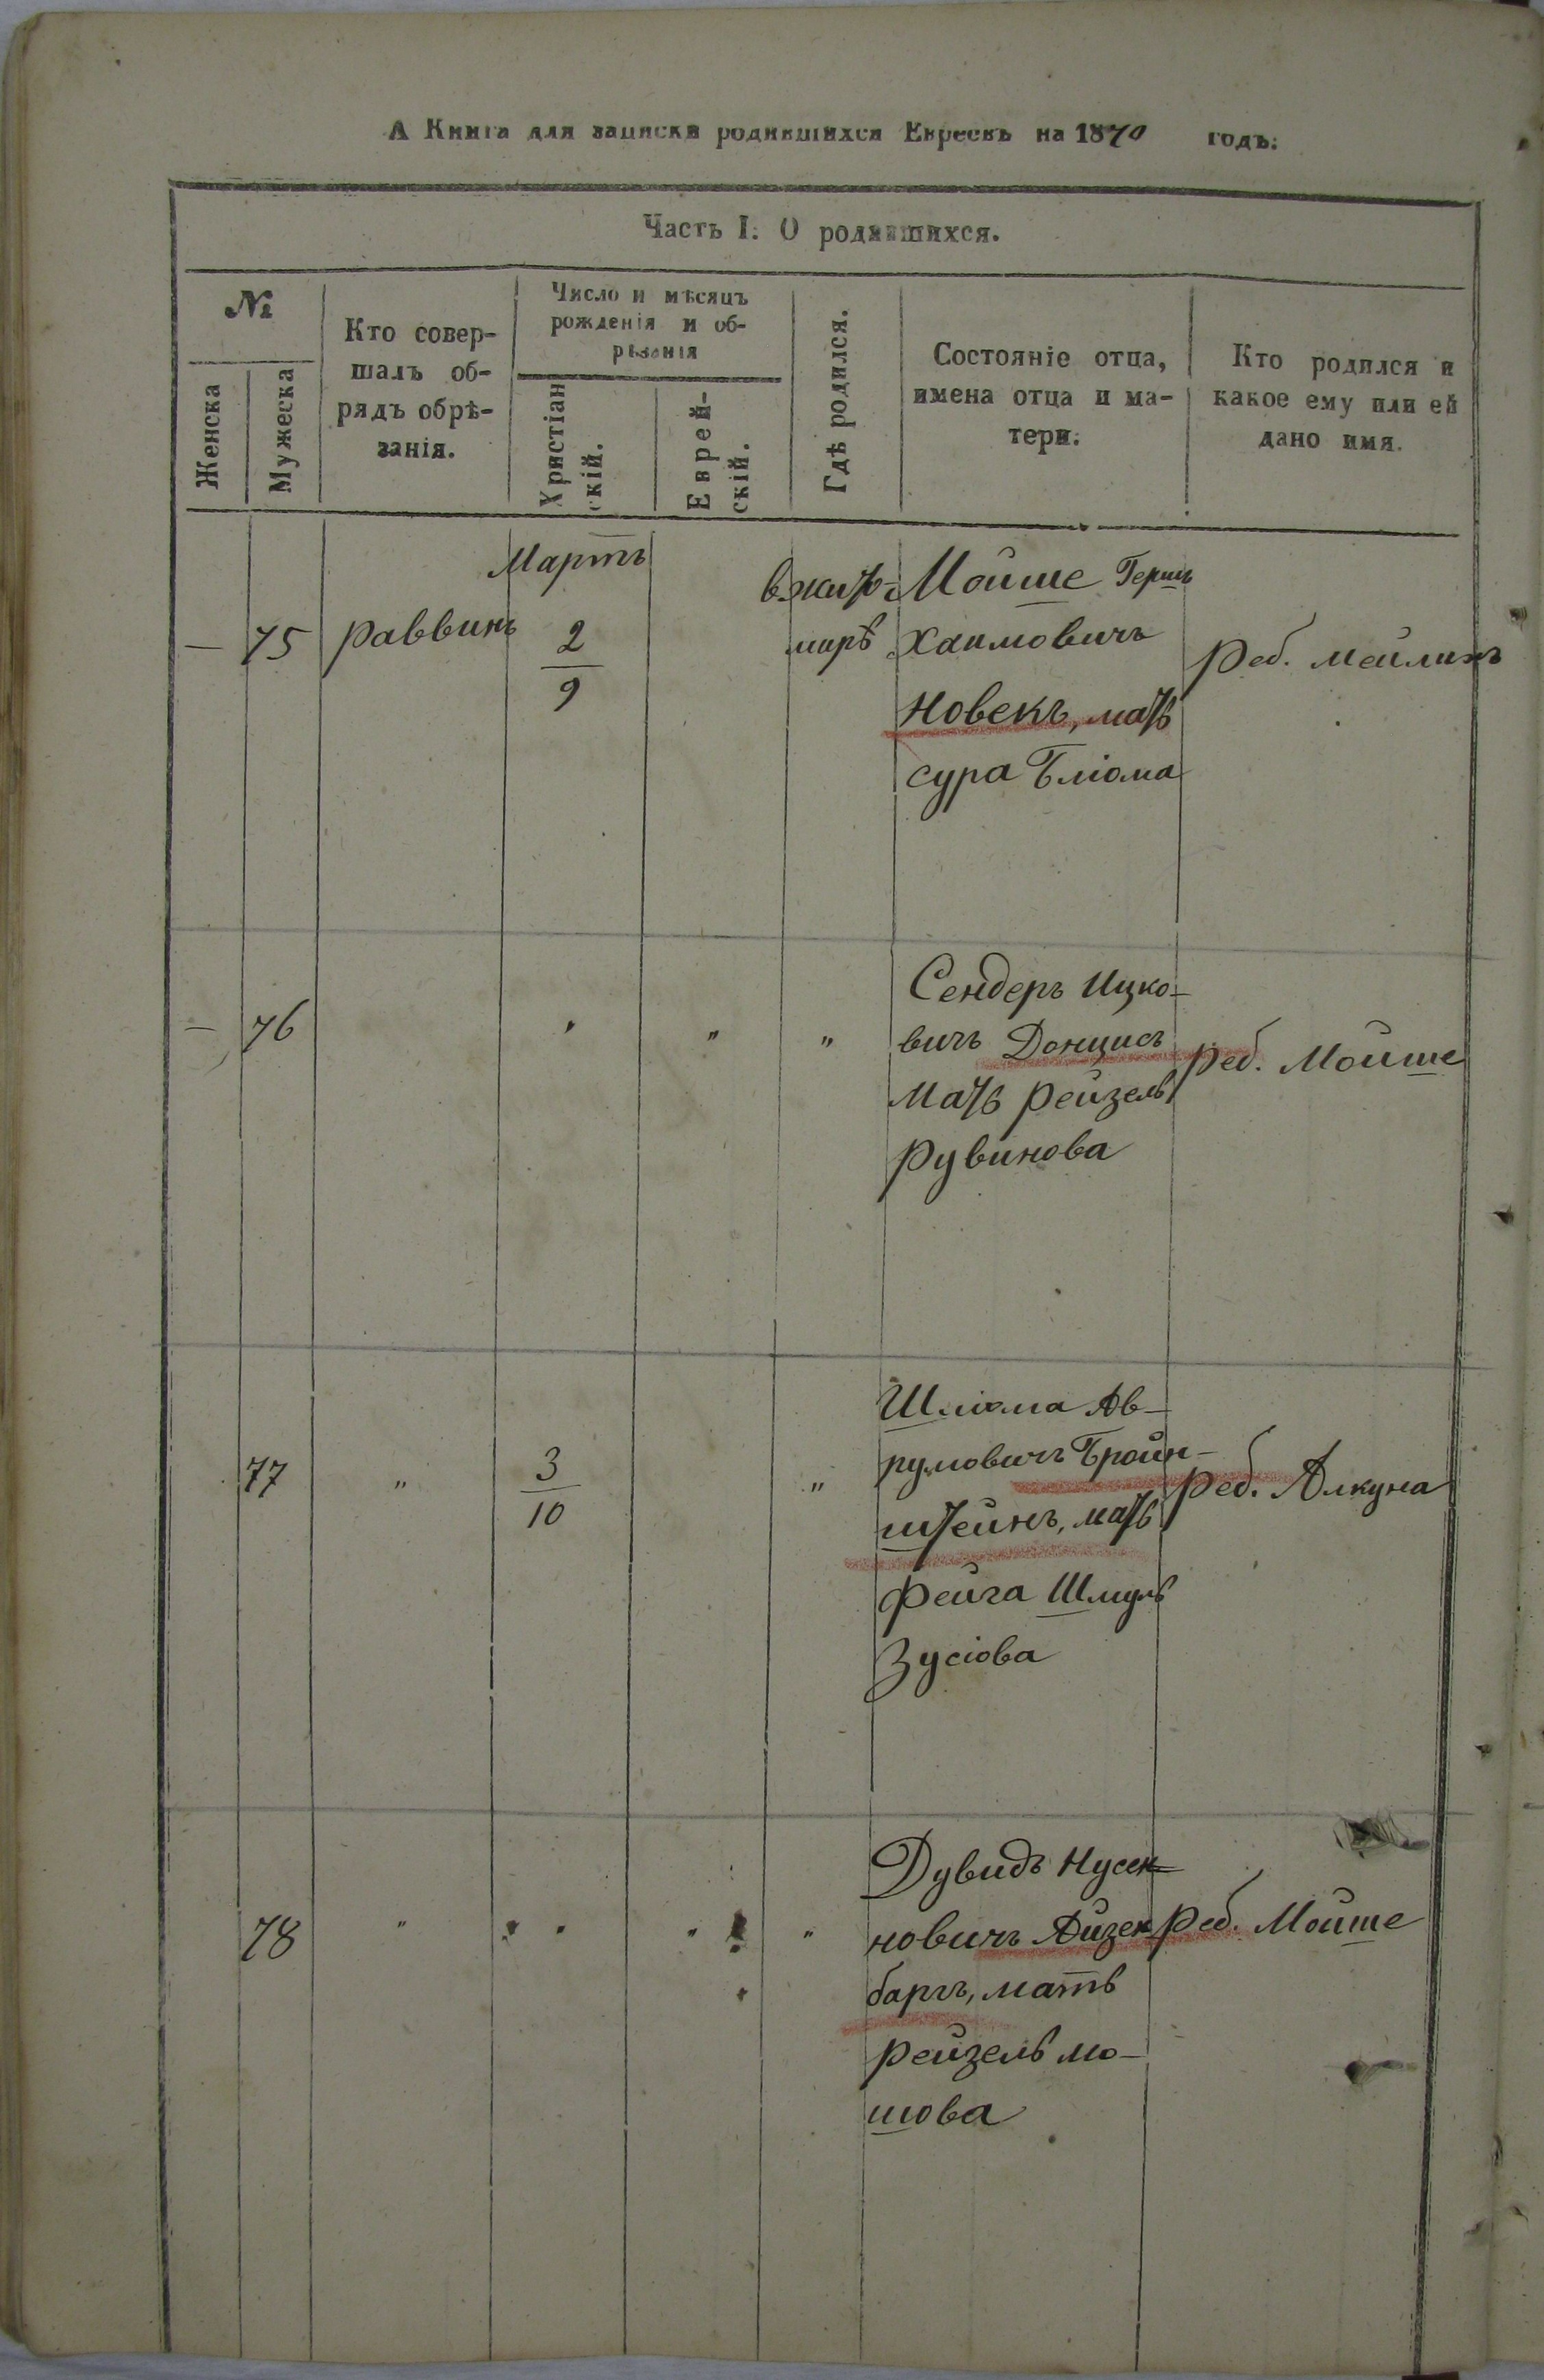 А Книга для записки родившихся Евреевъ на 1870 годъ.
Часть I. О родившихся.
№
Женска
Мужеска
Кто совер-
шалъ об-
рядъ обрѣ-
занія.
Число и мѣсяцъ
рожденія и об-
рѣзанія
Христіан
скій.
Еврей-
скій.
Гдѣ родился.
Состояніе отца,
имена отца и ма-
тери.
Кто родился и
какое ему или ей
дано имя.
Мартъ
— 75 Раввинъ 2/9
в Жито-
мирѣ
Мойше Герш
Хаимовичъ
Новекъ, мать
Сура Бліома
Реб. Мейлихъ
— 76 " " "
Сендеръ Ицко-
вичъ Донцисъ
Мать Рейзель
Рувинова
Реб. Мойше
77 " 3/10 "
Шліома Ав-
румовичъ Броин-
штейнъ, мать
Фейга Шмуль
Зусіова
Реб. Алкуна
78 " " " " "
Дувидъ Нусен-
новичъ Айзен
баргъ, мать
Рейзель Мо-
шова
Реб. Мойше